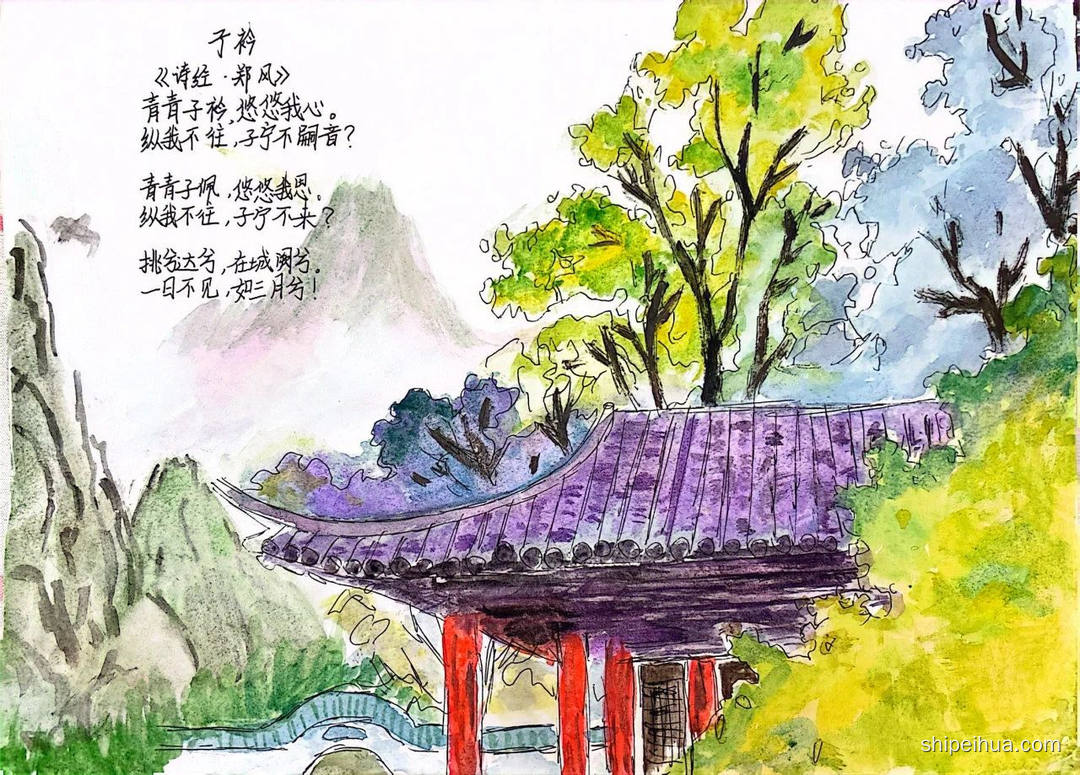 子衿
《诗经·郑风》
青青子衿,悠悠我心。
纵我不往,子宁不嗣音?
青青子佩,悠悠我思。
纵我不往,子宁不来?
挑兮达兮,在城阙兮。
一日不见,如三月兮!
shipeihua.com